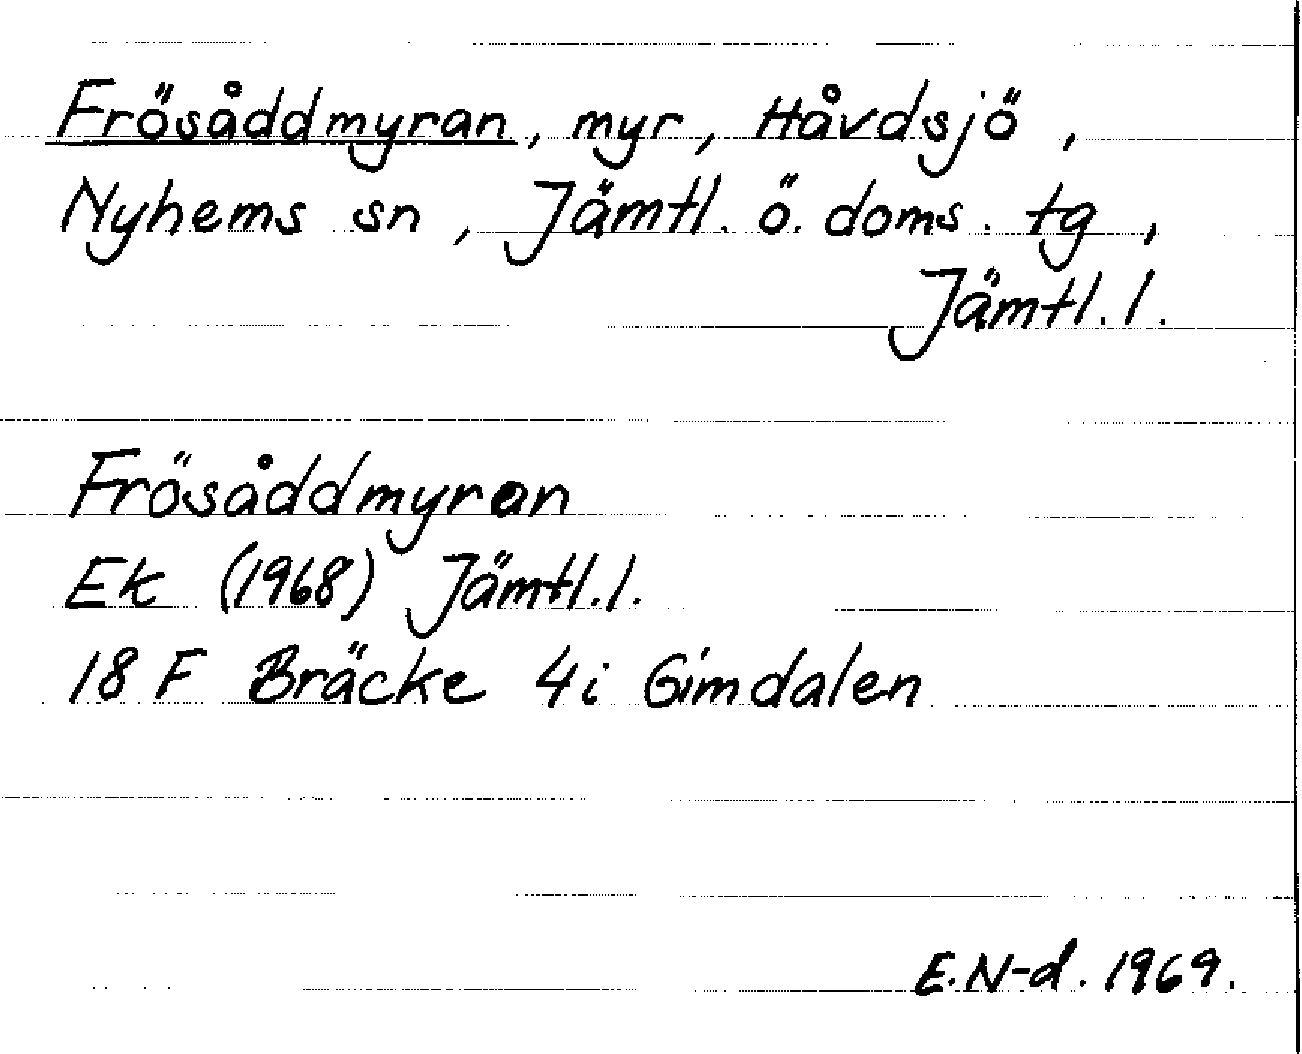 Frösåddmyran, myr, Håvdsjö,
Nyhems sn, Jämtl. ö. doms. tg,
Jämtl. l.
Frösåddmyran
Ek (1968) Jämtl. l.
18 F Bräcke 4i Gimdalen
E. N-d. 1969.